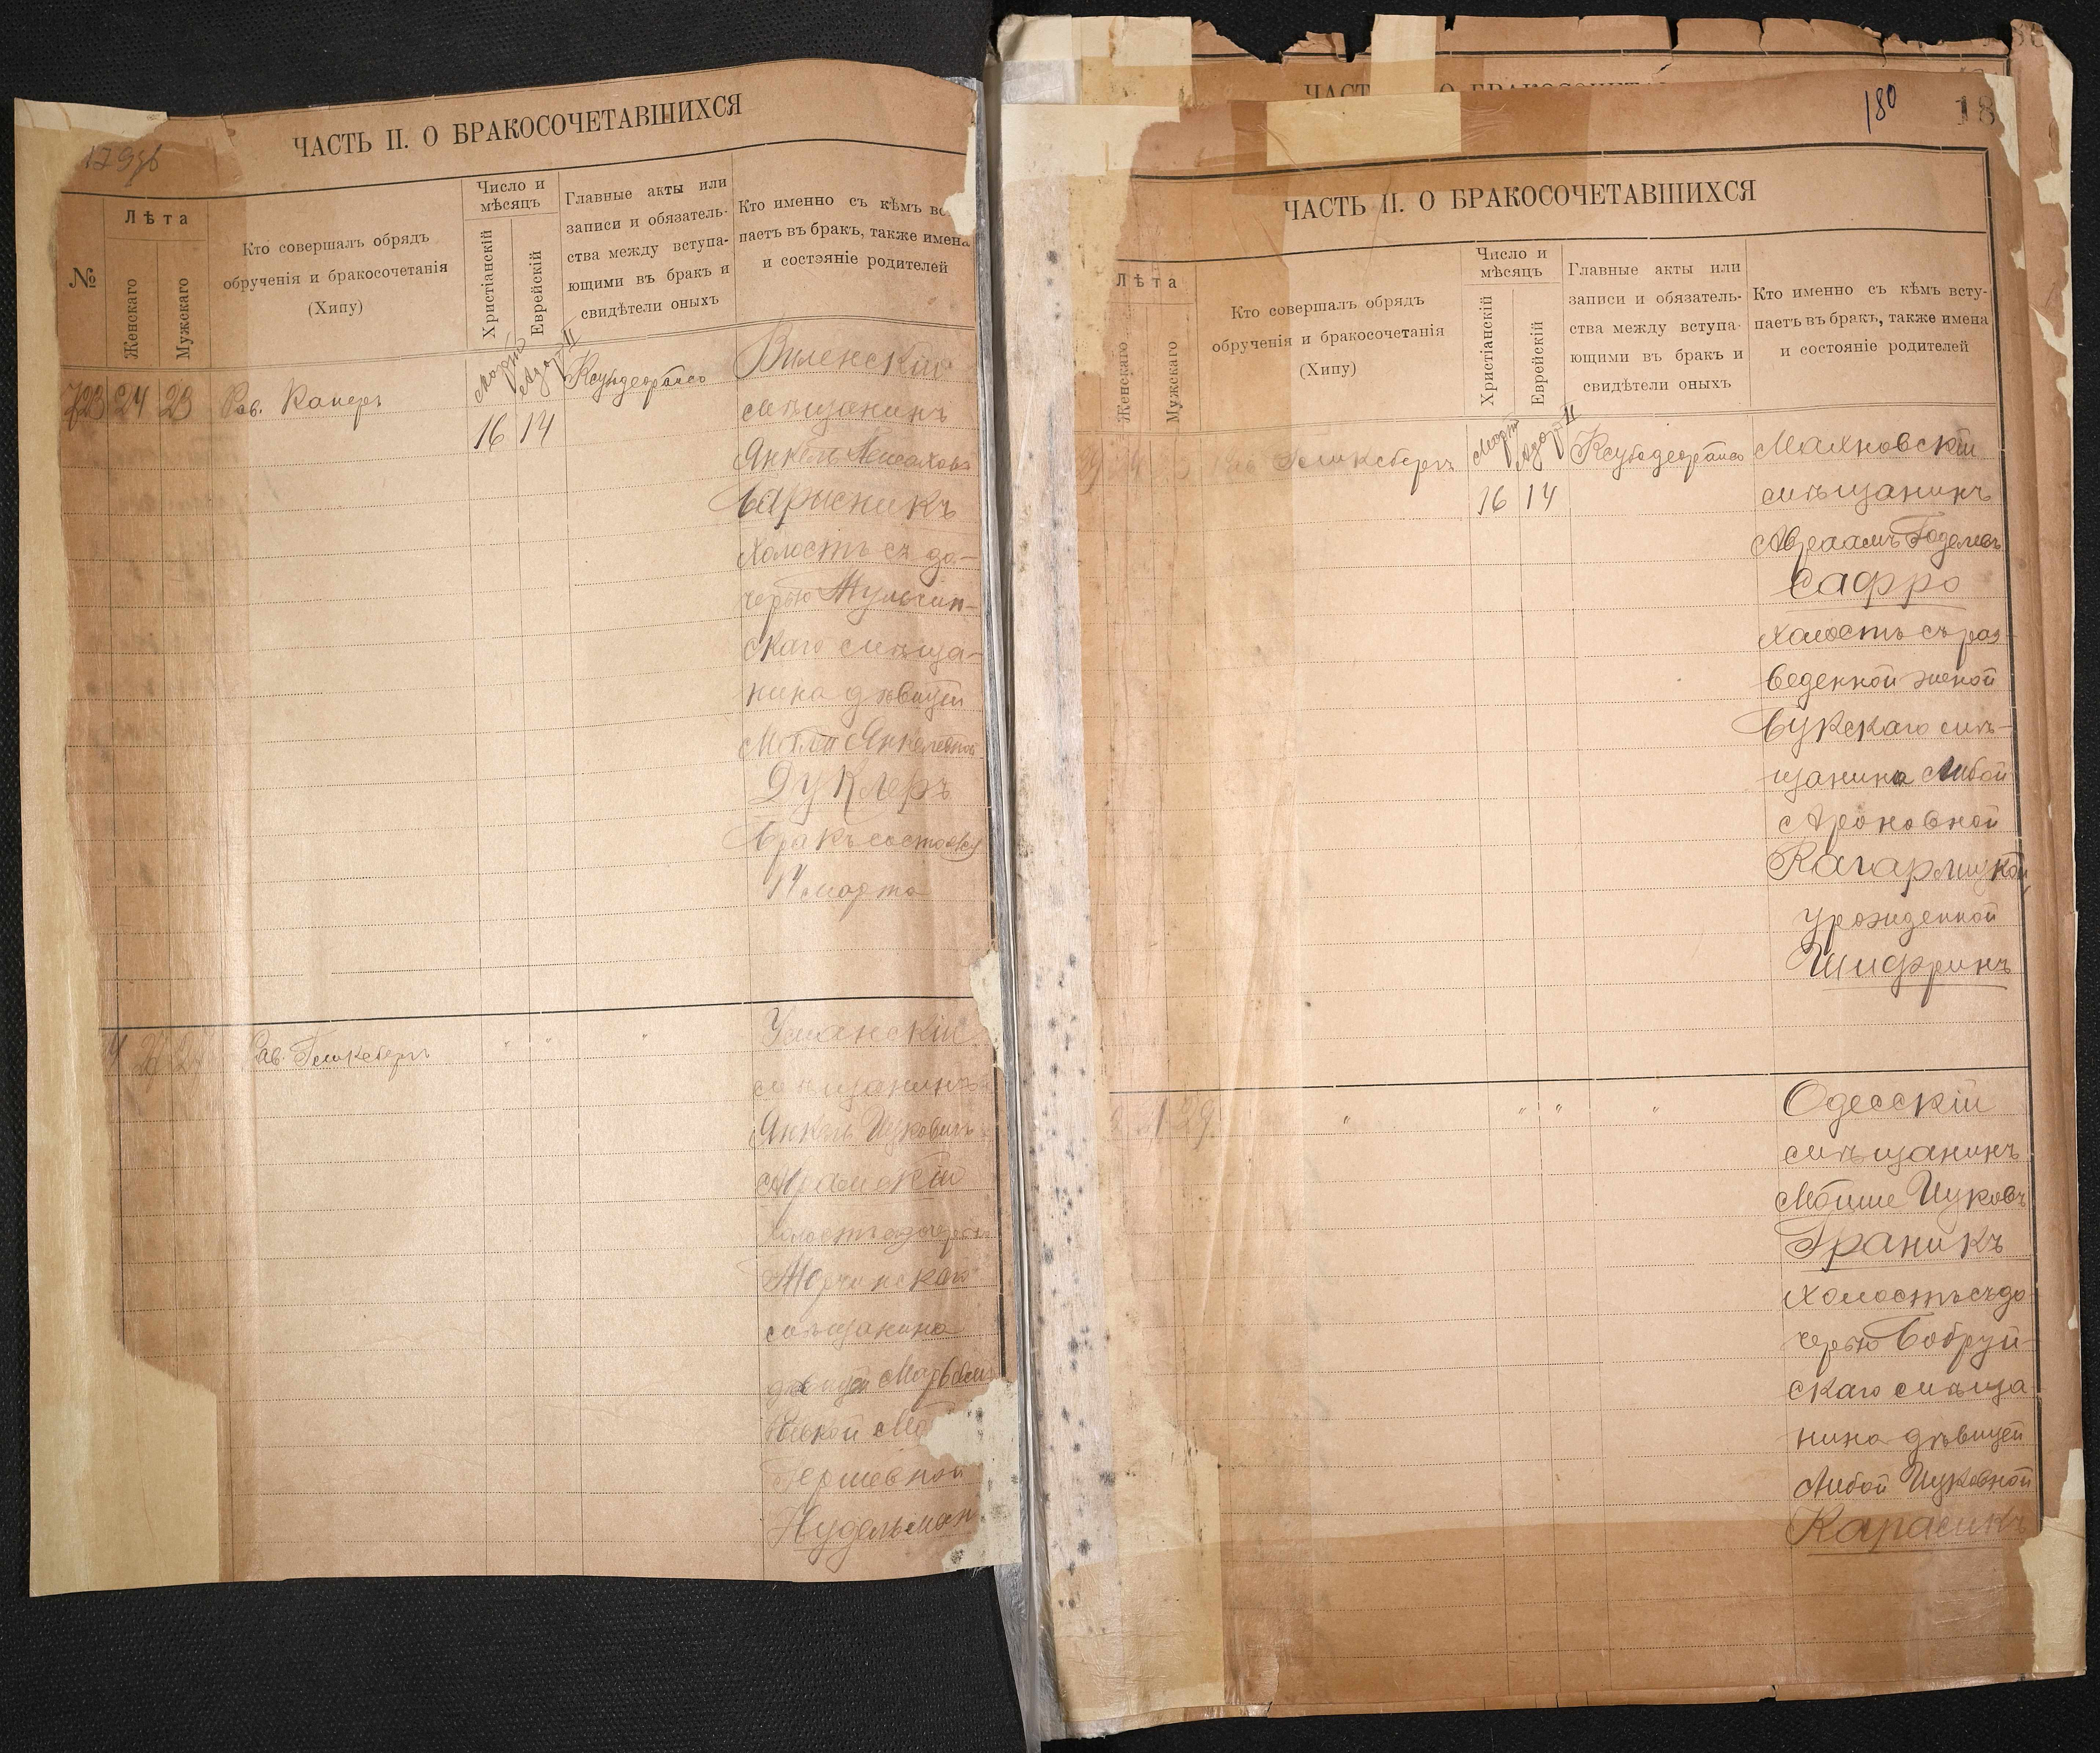 179об
ЧАСТЬ II. О БРАКОСОЧЕТАВШИХСЯ
№
Лѣта
Женскаго
Мужскаго
Кто совершалъ обрядъ
обрученія и бракосочетанія
(Хипу)
Число и
мѣсяцъ
Христіанскій
Еврейскій
Главные акты или
записи и обязатель-
ства между вступа-
ющими въ бракъ и
свидѣтели оныхъ
Кто именно съ кѣмъ вс
паетъ въ бракъ, также имена
и состояніе родителей
723 24 23 Рав. Каперъ
Марта
16
Адаръ II
14
Виленскій
мѣщанинъ
Янкель
Барысникъ
холостъ съ до-
черью Тульчин-
скаго мѣща-
нина дѣвицей
Янкелевной
Дуклеръ
Бракъ состоялся
14 марта
Рав. " " "
Уманскій
мѣщанинъ
Янкель Ицковичъ
холостъ съ дочерью
мѣщанина
дѣвицей
Гершевной
Нудельман
180
18
ЧАСТЬ II. О БРАКОСОЧЕТАВШИХСЯ
Лѣта
Женскаго
Мужскаго
Кто совершалъ обрядъ
обрученія и бракосочетанія
(Хипу)
Число и
мѣсяцъ
Христіанскій
Еврейскій
Главные акты или
записи и обязатель-
ства между вступа-
ющими въ бракъ и
свидѣтели оныхъ
Кто именно съ кѣмъ всту-
паетъ въ бракъ, также имена
и состояніе родителей
Марта
16
Адаръ II
14
Махновскій
мѣщанинъ
Авраамъ Годелевъ
Сафро
холостъ съ раз-
веденной женой
Букскаго мѣ-
щанина Либой
Ароновной
Кагарлицкой
урожденной
Шифринъ
29 " " " "
Одесскій
мѣщанинъ
Мойше Ицковъ
Граникъ
холостъ съ до
черью Бобруй
скаго мѣща
нина дѣвицей
Либой Ицковной
Карасикъ